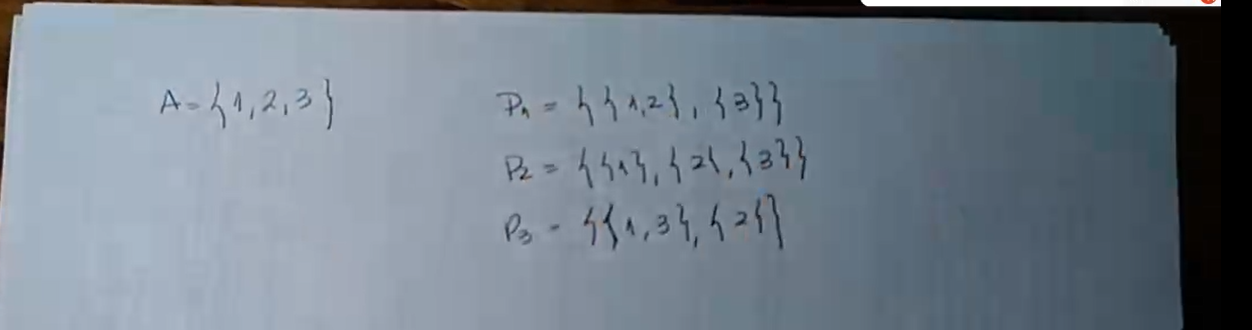 A = {1, 2, 3}
P₁ = {{1,2}, {3}}
P₂ = {{1}, {2}, {3}}
P₃ = {{1,3}, {2}}